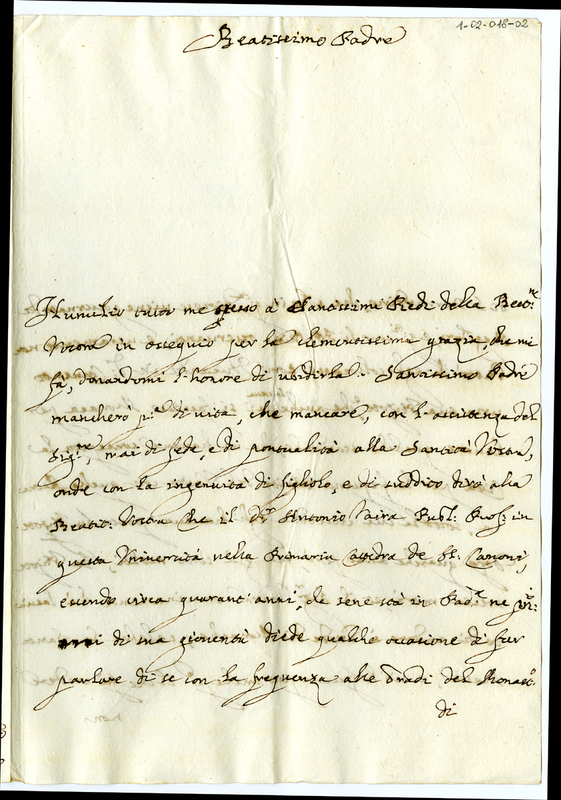 1-02-018-02
Beatissimo Padre
Humilio tutto me stesso à Santissimi Piedi della Beat.ne
Vostra in ossequio per la clementissima grazia, che mi
fà, donandomi l'honore di ubidirla. Santissimo Padre
mancherò p.a di vita, che mancare, con l'assistenza del
Sig.re, mai di fede, e di pontualità alla Santità Vostra,
onde con la ingenuità di figliolo, e di suddito dirò alla
Beatit: Vostra che il D.r Antonio Vaira Publ: Prof: in
questa Università nella Primaria Catedra de SS. Canoni,
essendo circa quarant'anni, che sene stà in Pad.a ne pri:
mi di sua gioventù diede qualche occasione di far
parlare di se con la frequenza alle Gradi del Monast.o
di